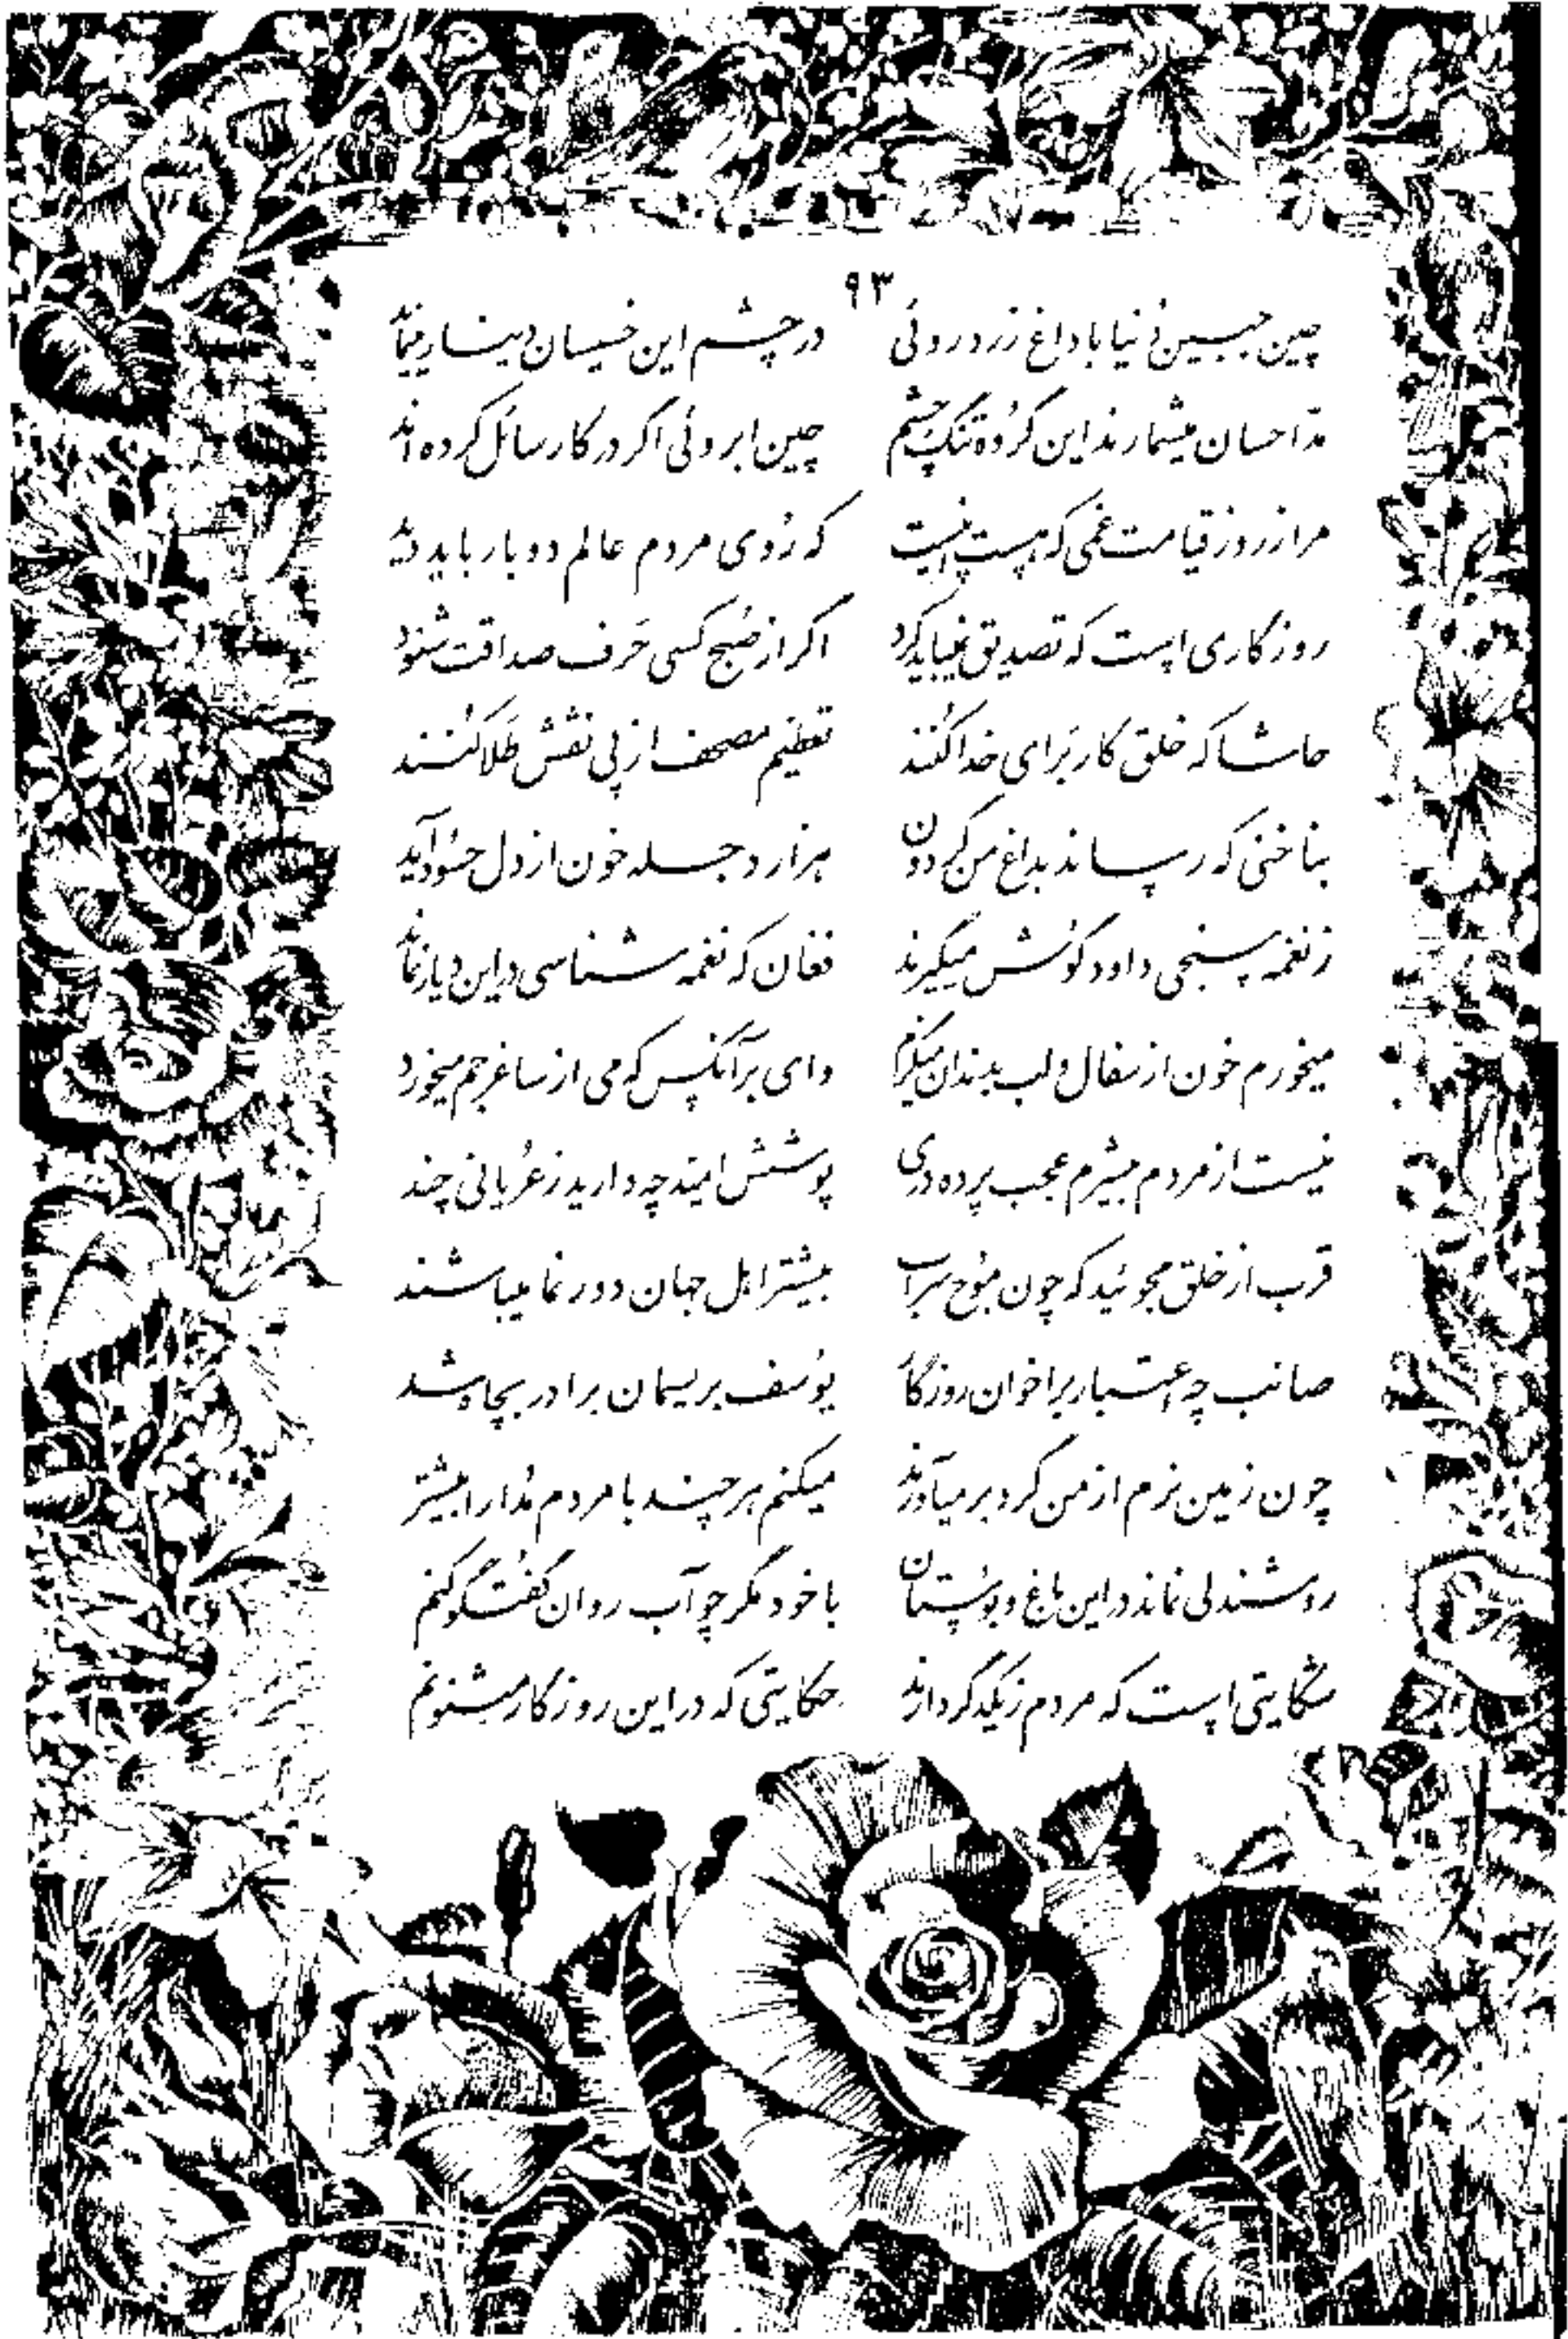 ۹۳
چین جبین دنیا با داغ زرد روئی در چشم این خسیسان دینار مینماید
مد احسان میشمارند این گروه تنگ چشم چین ابروئی اگر در کار سائل کرده اند
مرا ز روز قیامت غمی که هست اینست که روی مردم عالم دوبار باید دید
روزگاری است که تصدیق نمیباید کرد اگر از صبح کسی حرف صداقت شنود
حاشا که خلق کار برای خدا کنند تعظیم مصحف از پی نقش طلا کنند
بناخنی که رساند بداغ من گردون هزار دجله خون از دل حسود آید
ز نغمه سنجی داود گوش میگیرند فغان که نغمه شناسی در این دیار نماند
میخورم خون از سفال و لب بدندان میگزم وای بر آنکس که می از ساغر جم میخورد
نیست از مردم بیشرم عجب پرده دری پوشش امید چه دارید ز عریانی چند
قرب از خلق مجوئید که چون موج سراب بیشتر اهل جهان دور نما میباشند
صائب چه اعتبار بر اخوان روزگار یوسف بریسمان برادر بچاه شد
چون زمین نرم از من گرد بر میآورند میکنم هر چند با مردم مدارا بیشتر
روشندلی نماند در این باغ و بوستان با خود مگر چو آب روان گفتگو کنم
شکایتی است که مردم ز یکدگر دارند حکایتی که در این روزگار میشنوم